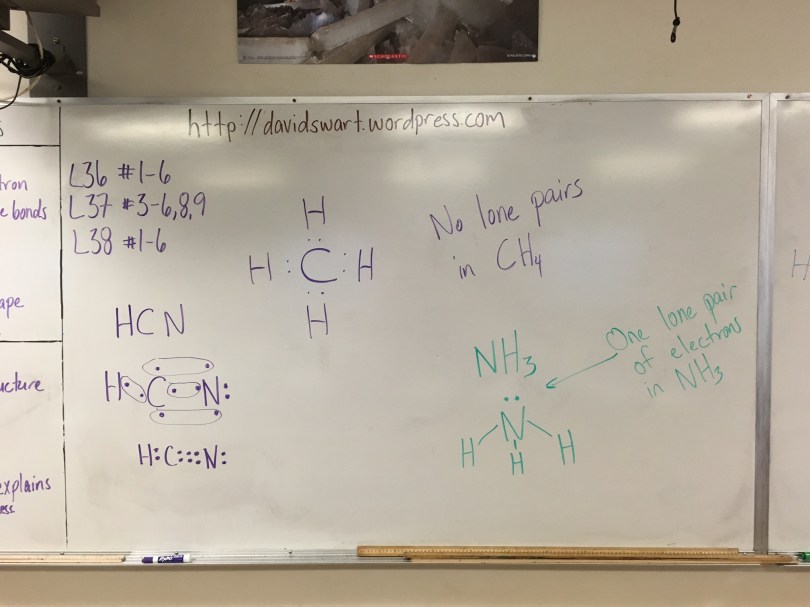 http://davidswart.wordpress.com
tron
e bonds
ape
ucture
explains
ess
L36 #1-6
L37 #3-6,8,9
L38 #1-6
H
H : C : H
H
No lone pairs
in CH4
HCN
H C N:
H:C:::N:
NH3
N
H H H
One lone pair
of electrons
in NH3
H
SCHOLASTIC